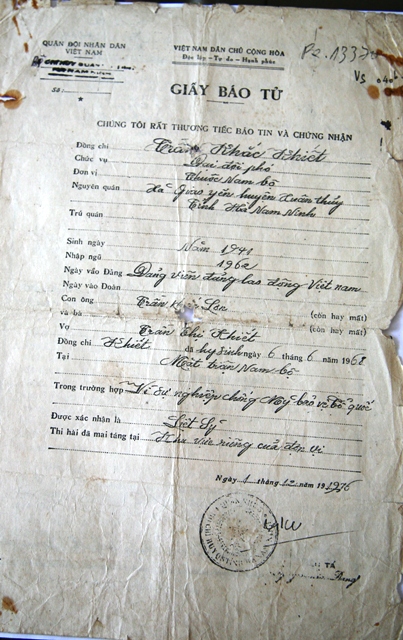 QUÂN ĐỘI NHÂN DÂN
VIỆT NAM
VIỆT NAM DÂN CHỦ CỘNG HÒA
Độc lập - Tự do - Hạnh phúc
Số:
GIẤY BÁO TỬ
CHÚNG TÔI RẤT THƯƠNG TIẾC BÁO TIN VÀ CHỨNG NHẬN
Đồng chí Trần Khắc Khiết
Chức vụ Đại đội phó
Đơn vị Thuộc Nam bộ
Nguyên quán Xã Giao yên huyện Xuân thủy
Tỉnh Hà Nam Ninh
Trú quán
Sinh ngày Năm 1941
Nhập ngũ 1962
Ngày vào Đảng Đảng viên đảng lao động Việt nam
Ngày vào Đoàn
Con ông Trần (còn hay mất)
và bà (còn hay mất)
Vợ Trần Thị Khiết
Đồng chí Khiết đã hy sinh ngày 6 tháng 6 năm 1968
Tại Mặt trận Nam bộ
Trong trường hợp Vì sự nghiệp chống Mỹ bảo vệ tổ quốc
Được xác nhận là Liệt Sỹ
Thi hài đã mai táng tại Khu vực riêng của đơn vị
Ngày 1 tháng 12 năm 1976